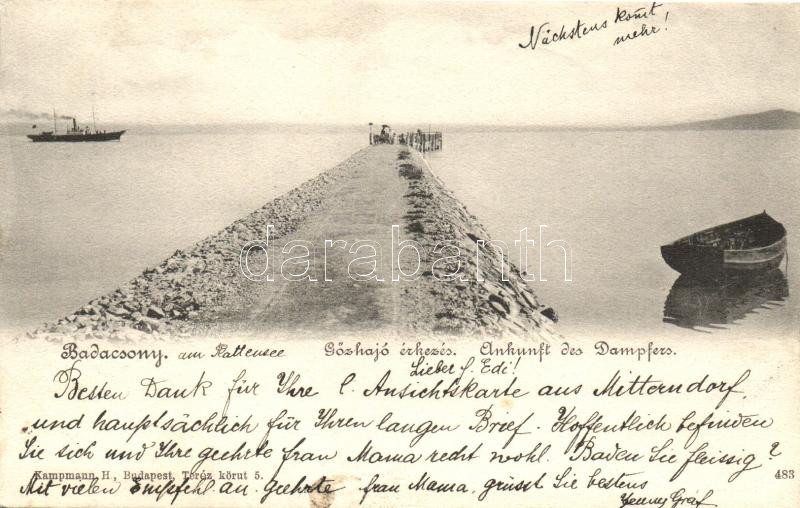 Nächstens kommt
mehr!
darabanth
Badacsony. am Plattensee
Gőzhajó érkezés. Ankunft des Dampfers.
Lieber H. Edi!
Besten Dank für Ihre l. Ansichtskarte aus Mitterndorf,
und hauptsächlich für Ihren langen Brief. Hoffentlich befinden
Sie sich und Ihre geehrte frau Mama recht wohl. Baden Sie fleissig?
Kampmann H., Budapest, Teréz körut 5.
483
Mit vielen Empfehl. an geehrte frau Mama, grüsst Sie bestens
Jenny